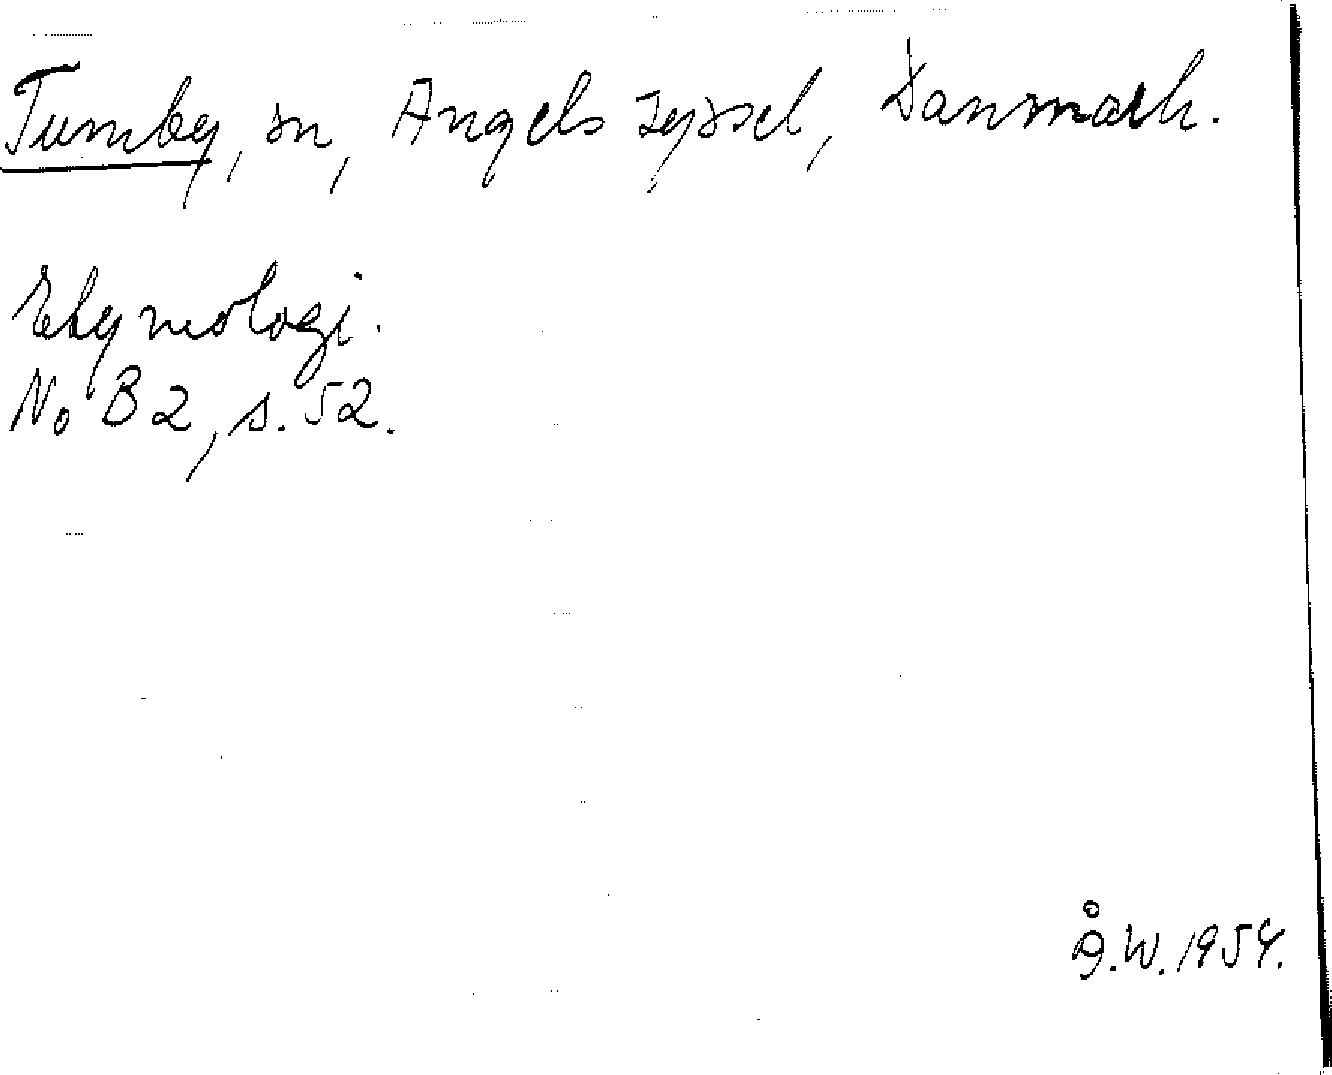 Tumby, sn, Angels syssel, Danmark.
Etymologi.
NoB 2, s. 52.
Å.W. 1954.